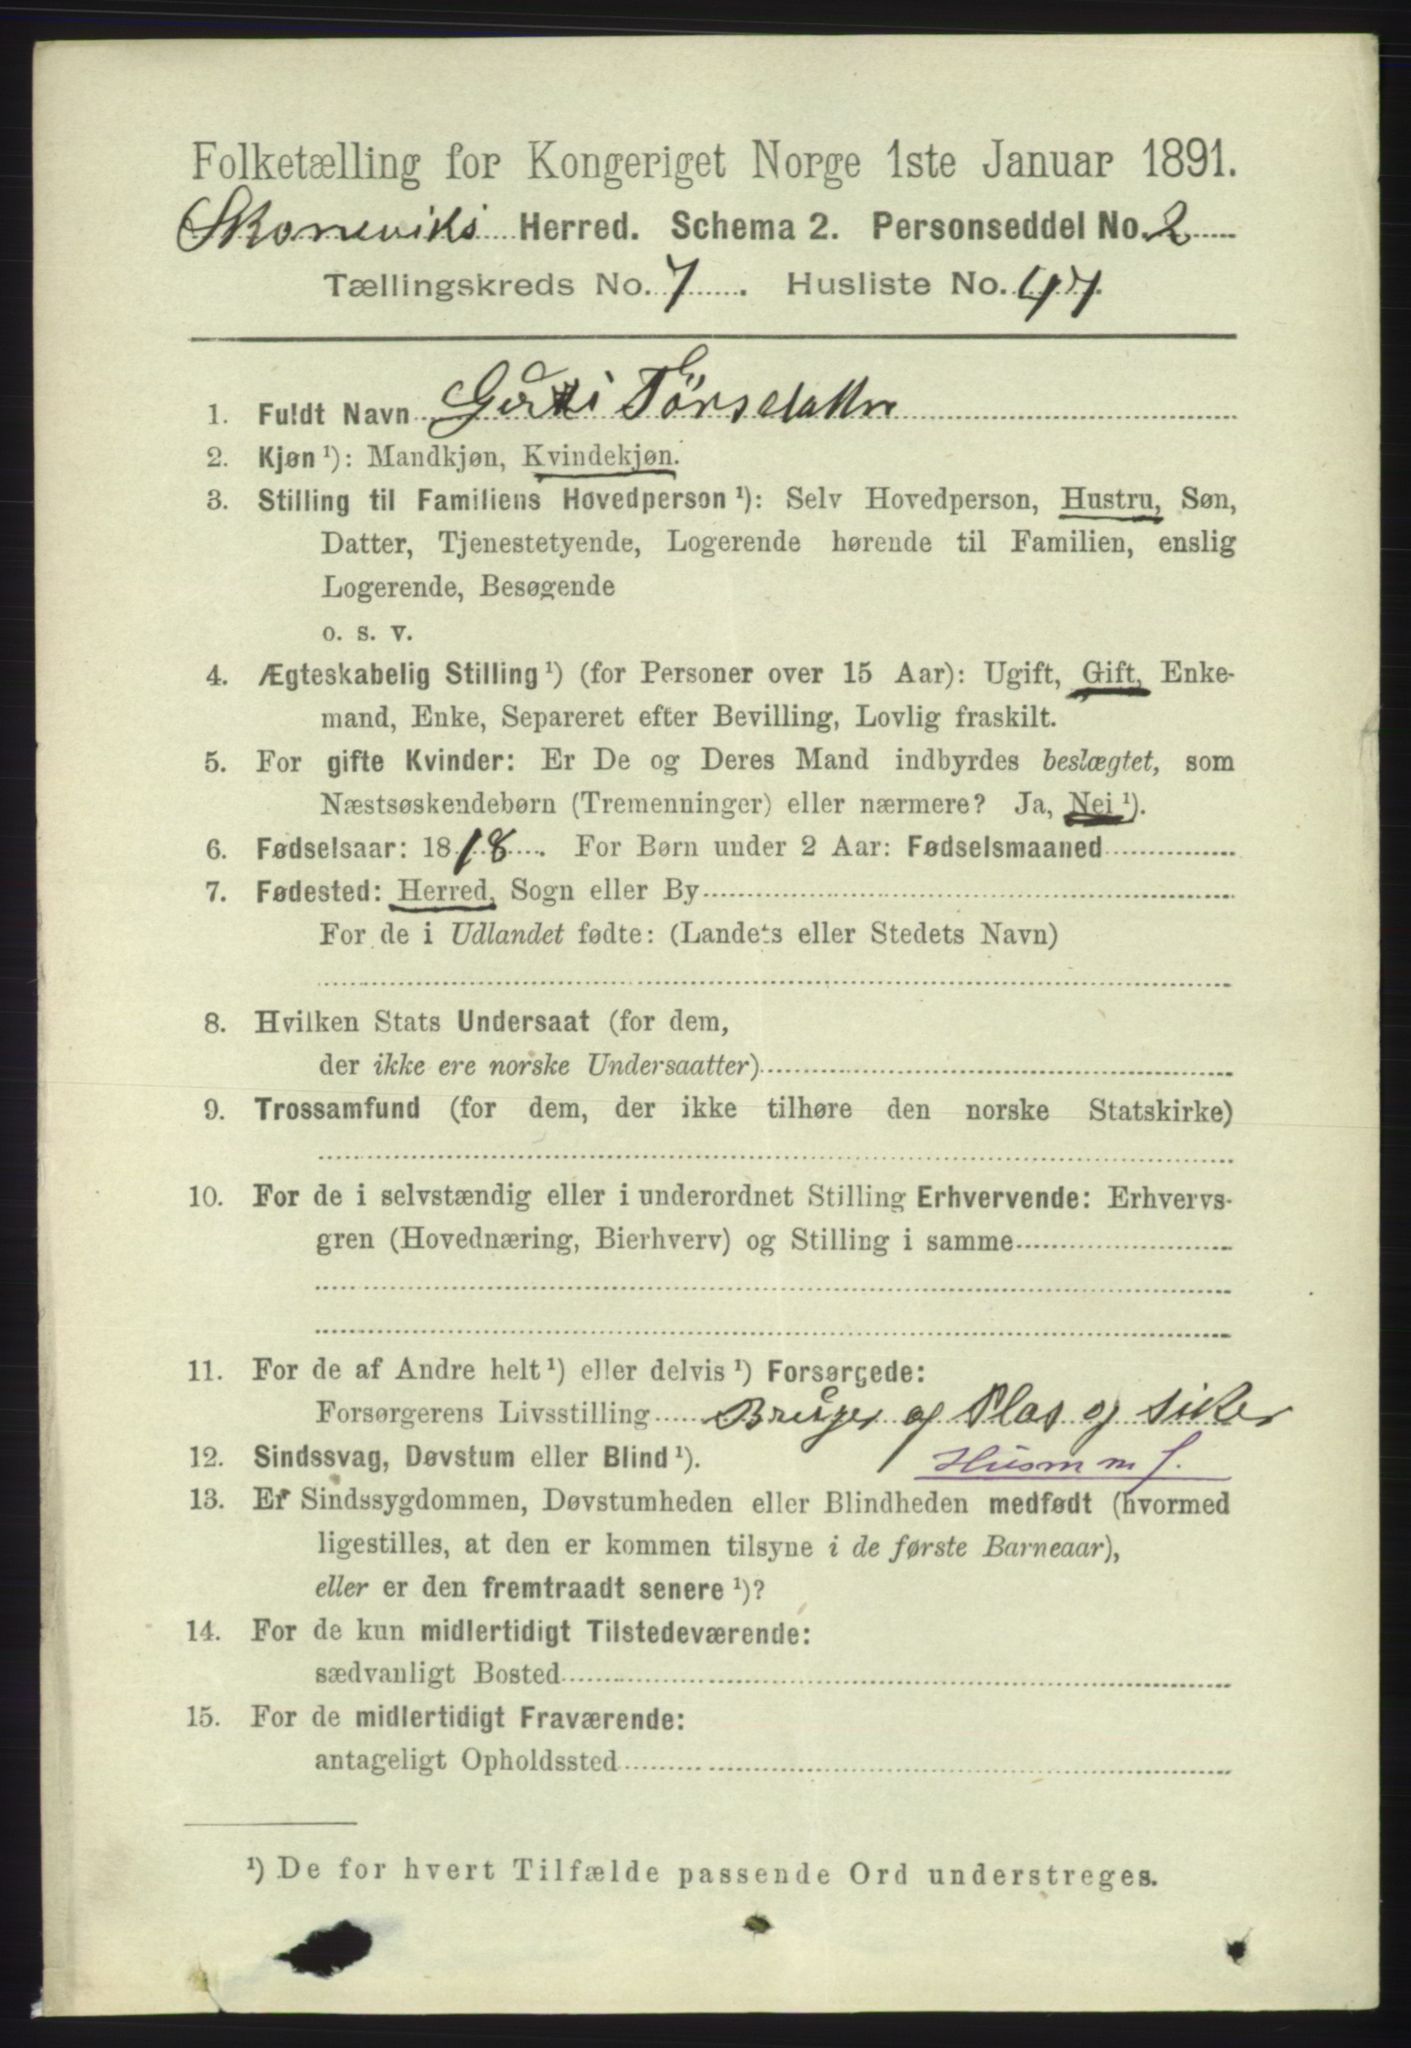 Folketælling for Kongeriget Norge 1ste Januar 1891.
Skoneviks Herred. Schema 2. Personseddel No. 2
Tællingskreds No. 7. Husliste No. 47.
1. Fuldt Navn Tørsdatter
2. Kjøn ¹): Mandkjøn, Kvindekjøn.
3. Stilling til Familiens Hovedperson ¹): Selv Hovedperson, Hustru, Søn,
Datter, Tjenestetyende, Logerende hørende til Familien, enslig
Logerende, Besøgende
o. s. v.
4. Ægteskabelig Stilling ¹) (for Personer over 15 Aar): Ugift, Gift, Enke-
mand, Enke, Separeret efter Bevilling, Lovlig fraskilt.
5. For gifte Kvinder: Er De og Deres Mand indbyrdes beslægtet, som
Næstsøskendebørn (Tremenninger) eller nærmere? Ja, Nei ¹).
6. Fødselsaar: 1818. For Børn under 2 Aar: Fødselsmaaned
7. Fødested: Herred, Sogn eller By
For de i Udlandet fødte: (Landets eller Stedets Navn)
8. Hvilken Stats Undersaat (for dem,
der ikke ere norske Undersaatter)
9. Trossamfund (for dem, der ikke tilhøre den norske Statskirke)
10. For de i selvstændig eller i underordnet Stilling Erhvervende: Erhvervs-
gren (Hovednæring, Bierhverv) og Stilling i samme
11. For de af Andre helt ¹) eller delvis ¹) Forsørgede:
Forsørgerens Livsstilling Bruger af Plas og
12. Sindssvag, Døvstum eller Blind ¹). Husm m J.
13. Er Sindssygdommen, Døvstumheden eller Blindheden medfødt (hvormed
ligestilles, at den er kommen tilsyne i de første Barneaar),
eller er den fremtraadt senere ¹)?
14. For de kun midlertidigt Tilstedeværende:
sædvanligt Bosted
15. For de midlertidigt Fraværende:
antageligt Opholdssted
¹) De for hvert Tilfælde passende Ord understreges.